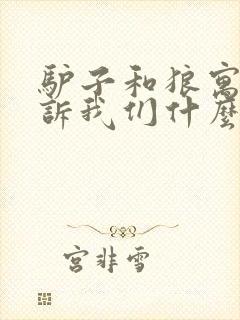 驴子和狼寓
訴我们什麼
宫非雪